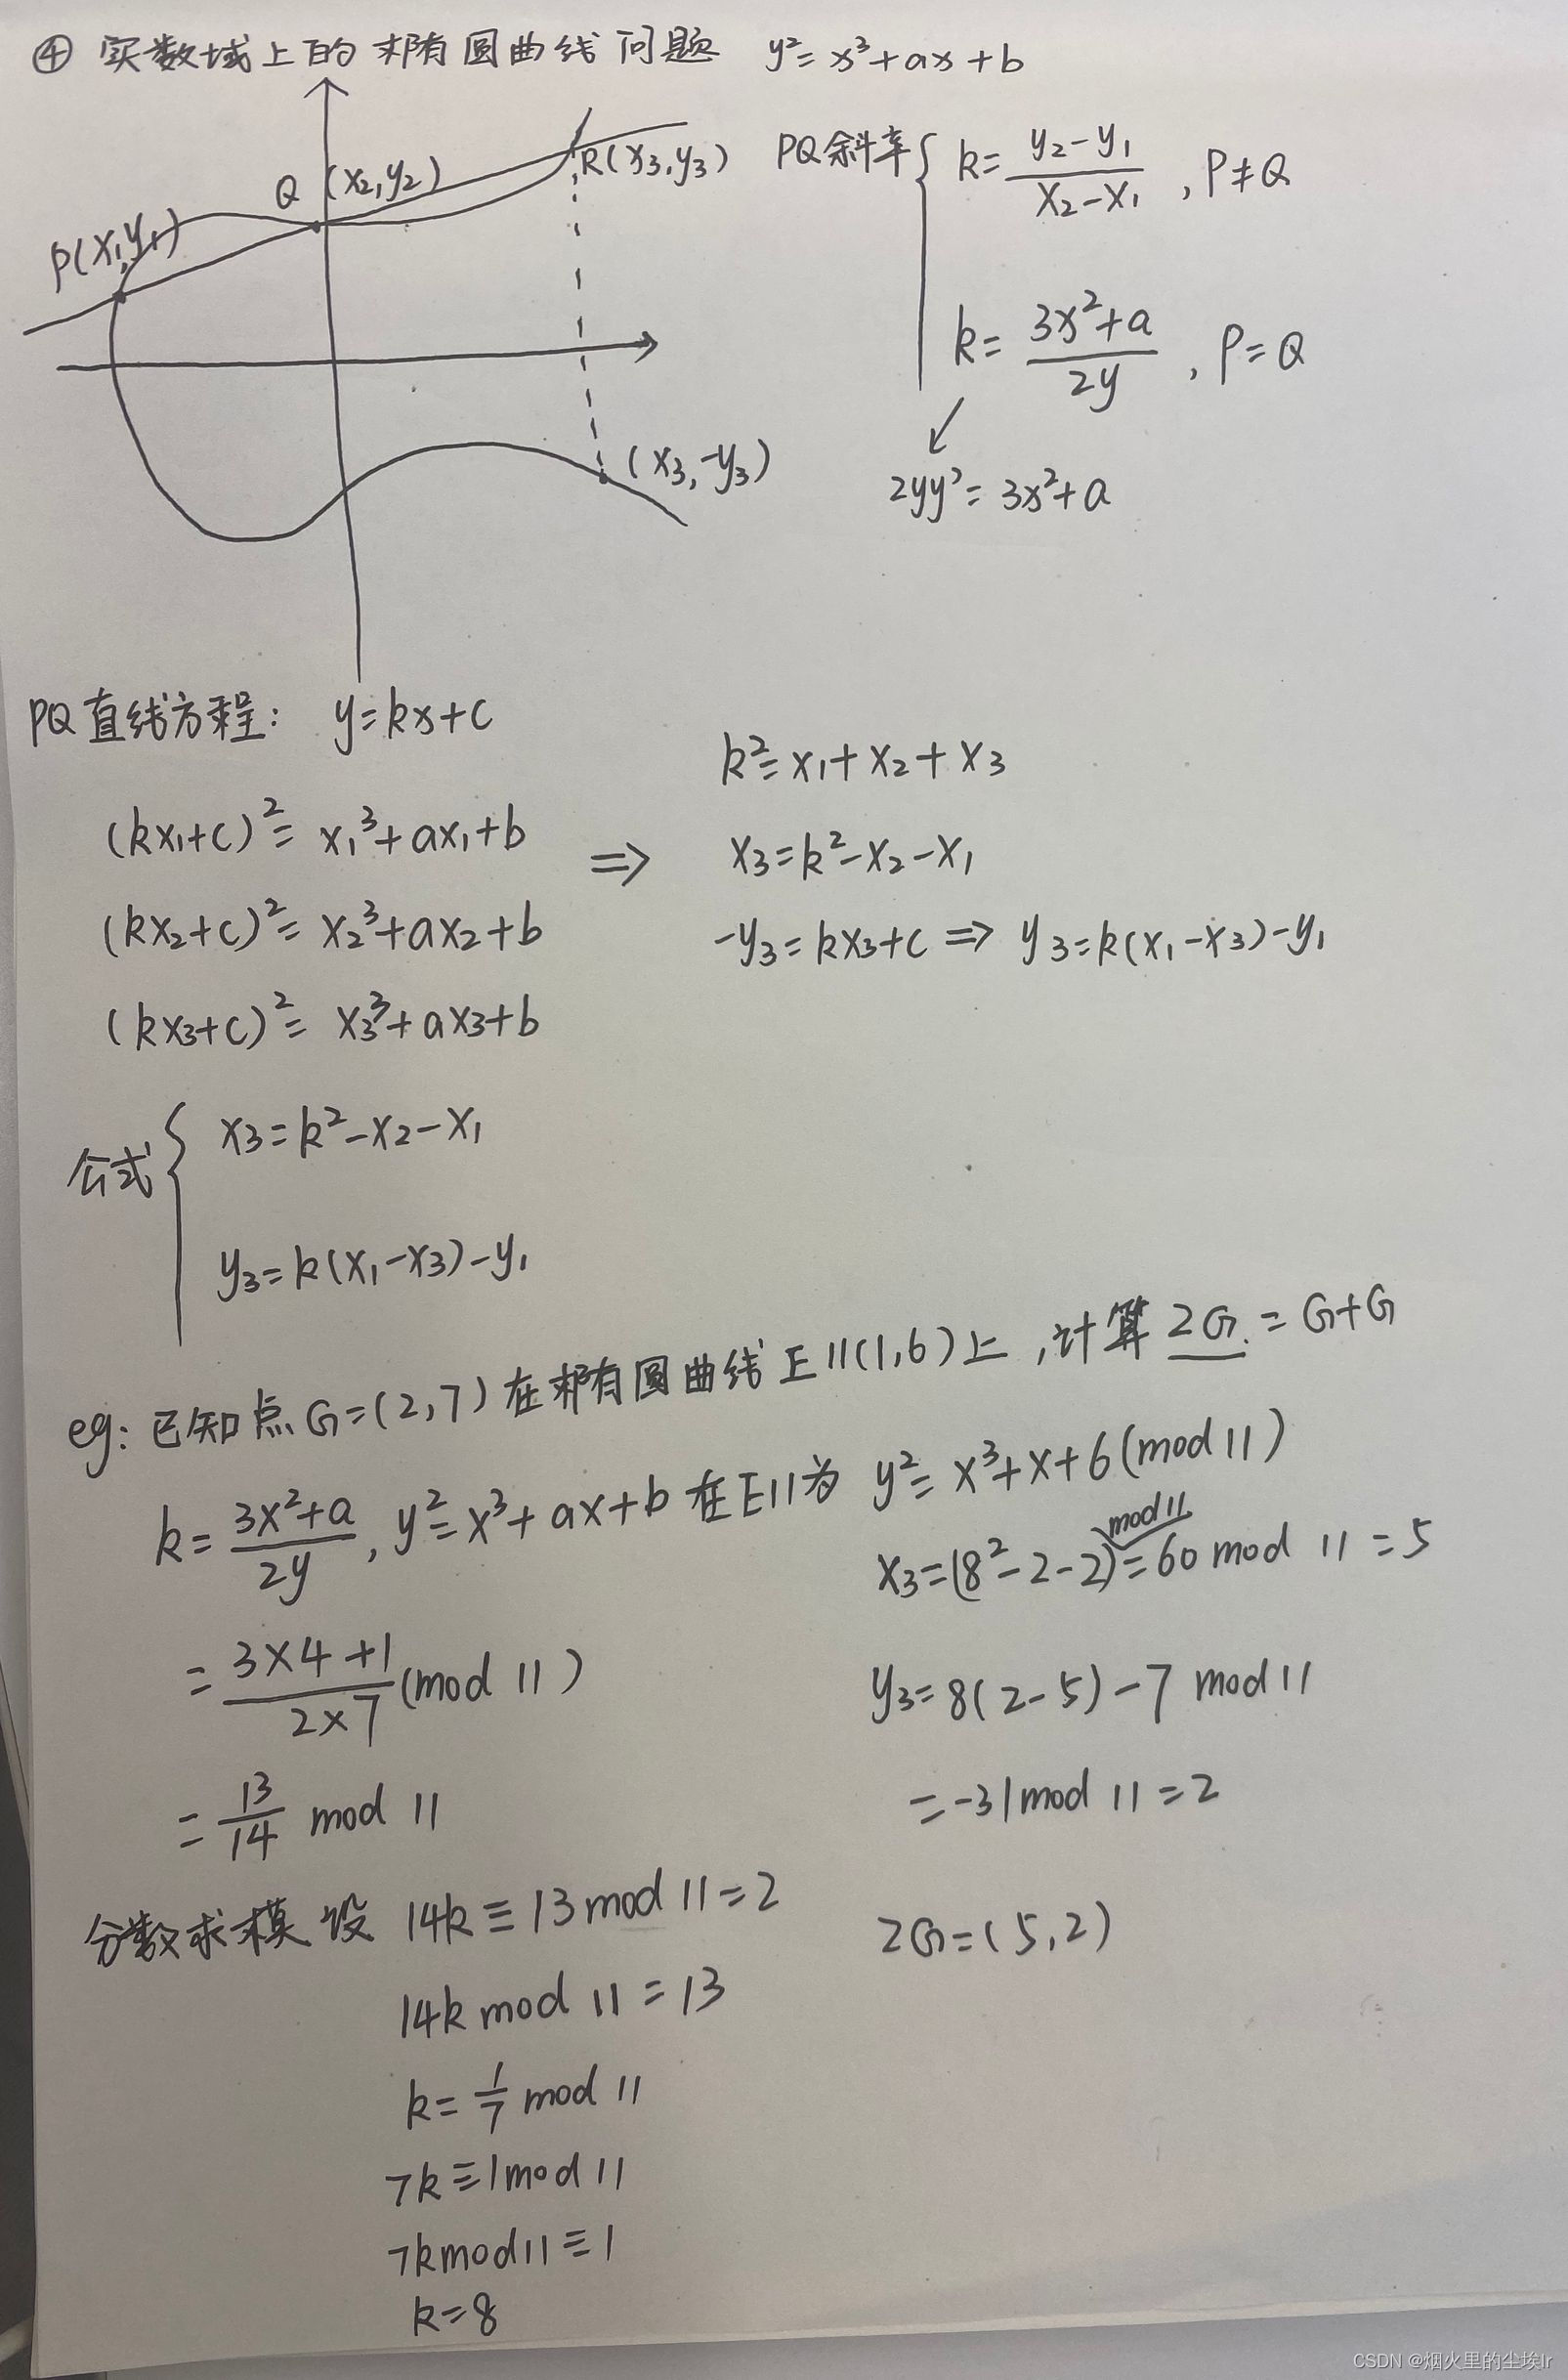 ④ 实数域上的椭圆曲线问题 y²=x³+ax+b
Q (x₂,y₂)
R(x₃,y₃)
P(x₁,y₁)
(x₃,-y₃)
PQ斜率{ k=(y₂-y₁)/(x₂-x₁) , P≠Q
k=(3x²+a)/(2y) , P=Q
↙
2yy'=3x²+a
PQ直线方程: y=kx+c
(kx₁+c)²=x₁³+ax₁+b
(kx₂+c)²=x₂³+ax₂+b
(kx₃+c)²=x₃³+ax₃+b
⇒
k²=x₁+x₂+x₃
x₃=k²-x₂-x₁
-y₃=kx₃+c ⇒ y₃=k(x₁-x₃)-y₁
公式{ x₃=k²-x₂-x₁
y₃=k(x₁-x₃)-y₁
eg: 已知点G=(2,7)在椭圆曲线E11(1,6)上,计算2G=G+G
k=(3x²+a)/(2y), y²=x³+ax+b 在E11为 y²=x³+x+6(mod 11)
=(3×4+1)/(2×7) (mod 11)
=13/14 mod 11
分数求模 设 14k≡13 mod 11=2
14k mod 11=13
k=1/7 mod 11
7k≡1 mod 11
7k mod 11≡1
k=8
mod 11
x₃=(8²-2-2)=60 mod 11=5
y₃=8(2-5)-7 mod 11
=-31 mod 11=2
2G=(5,2)
CSDN @烟火里的尘埃lr